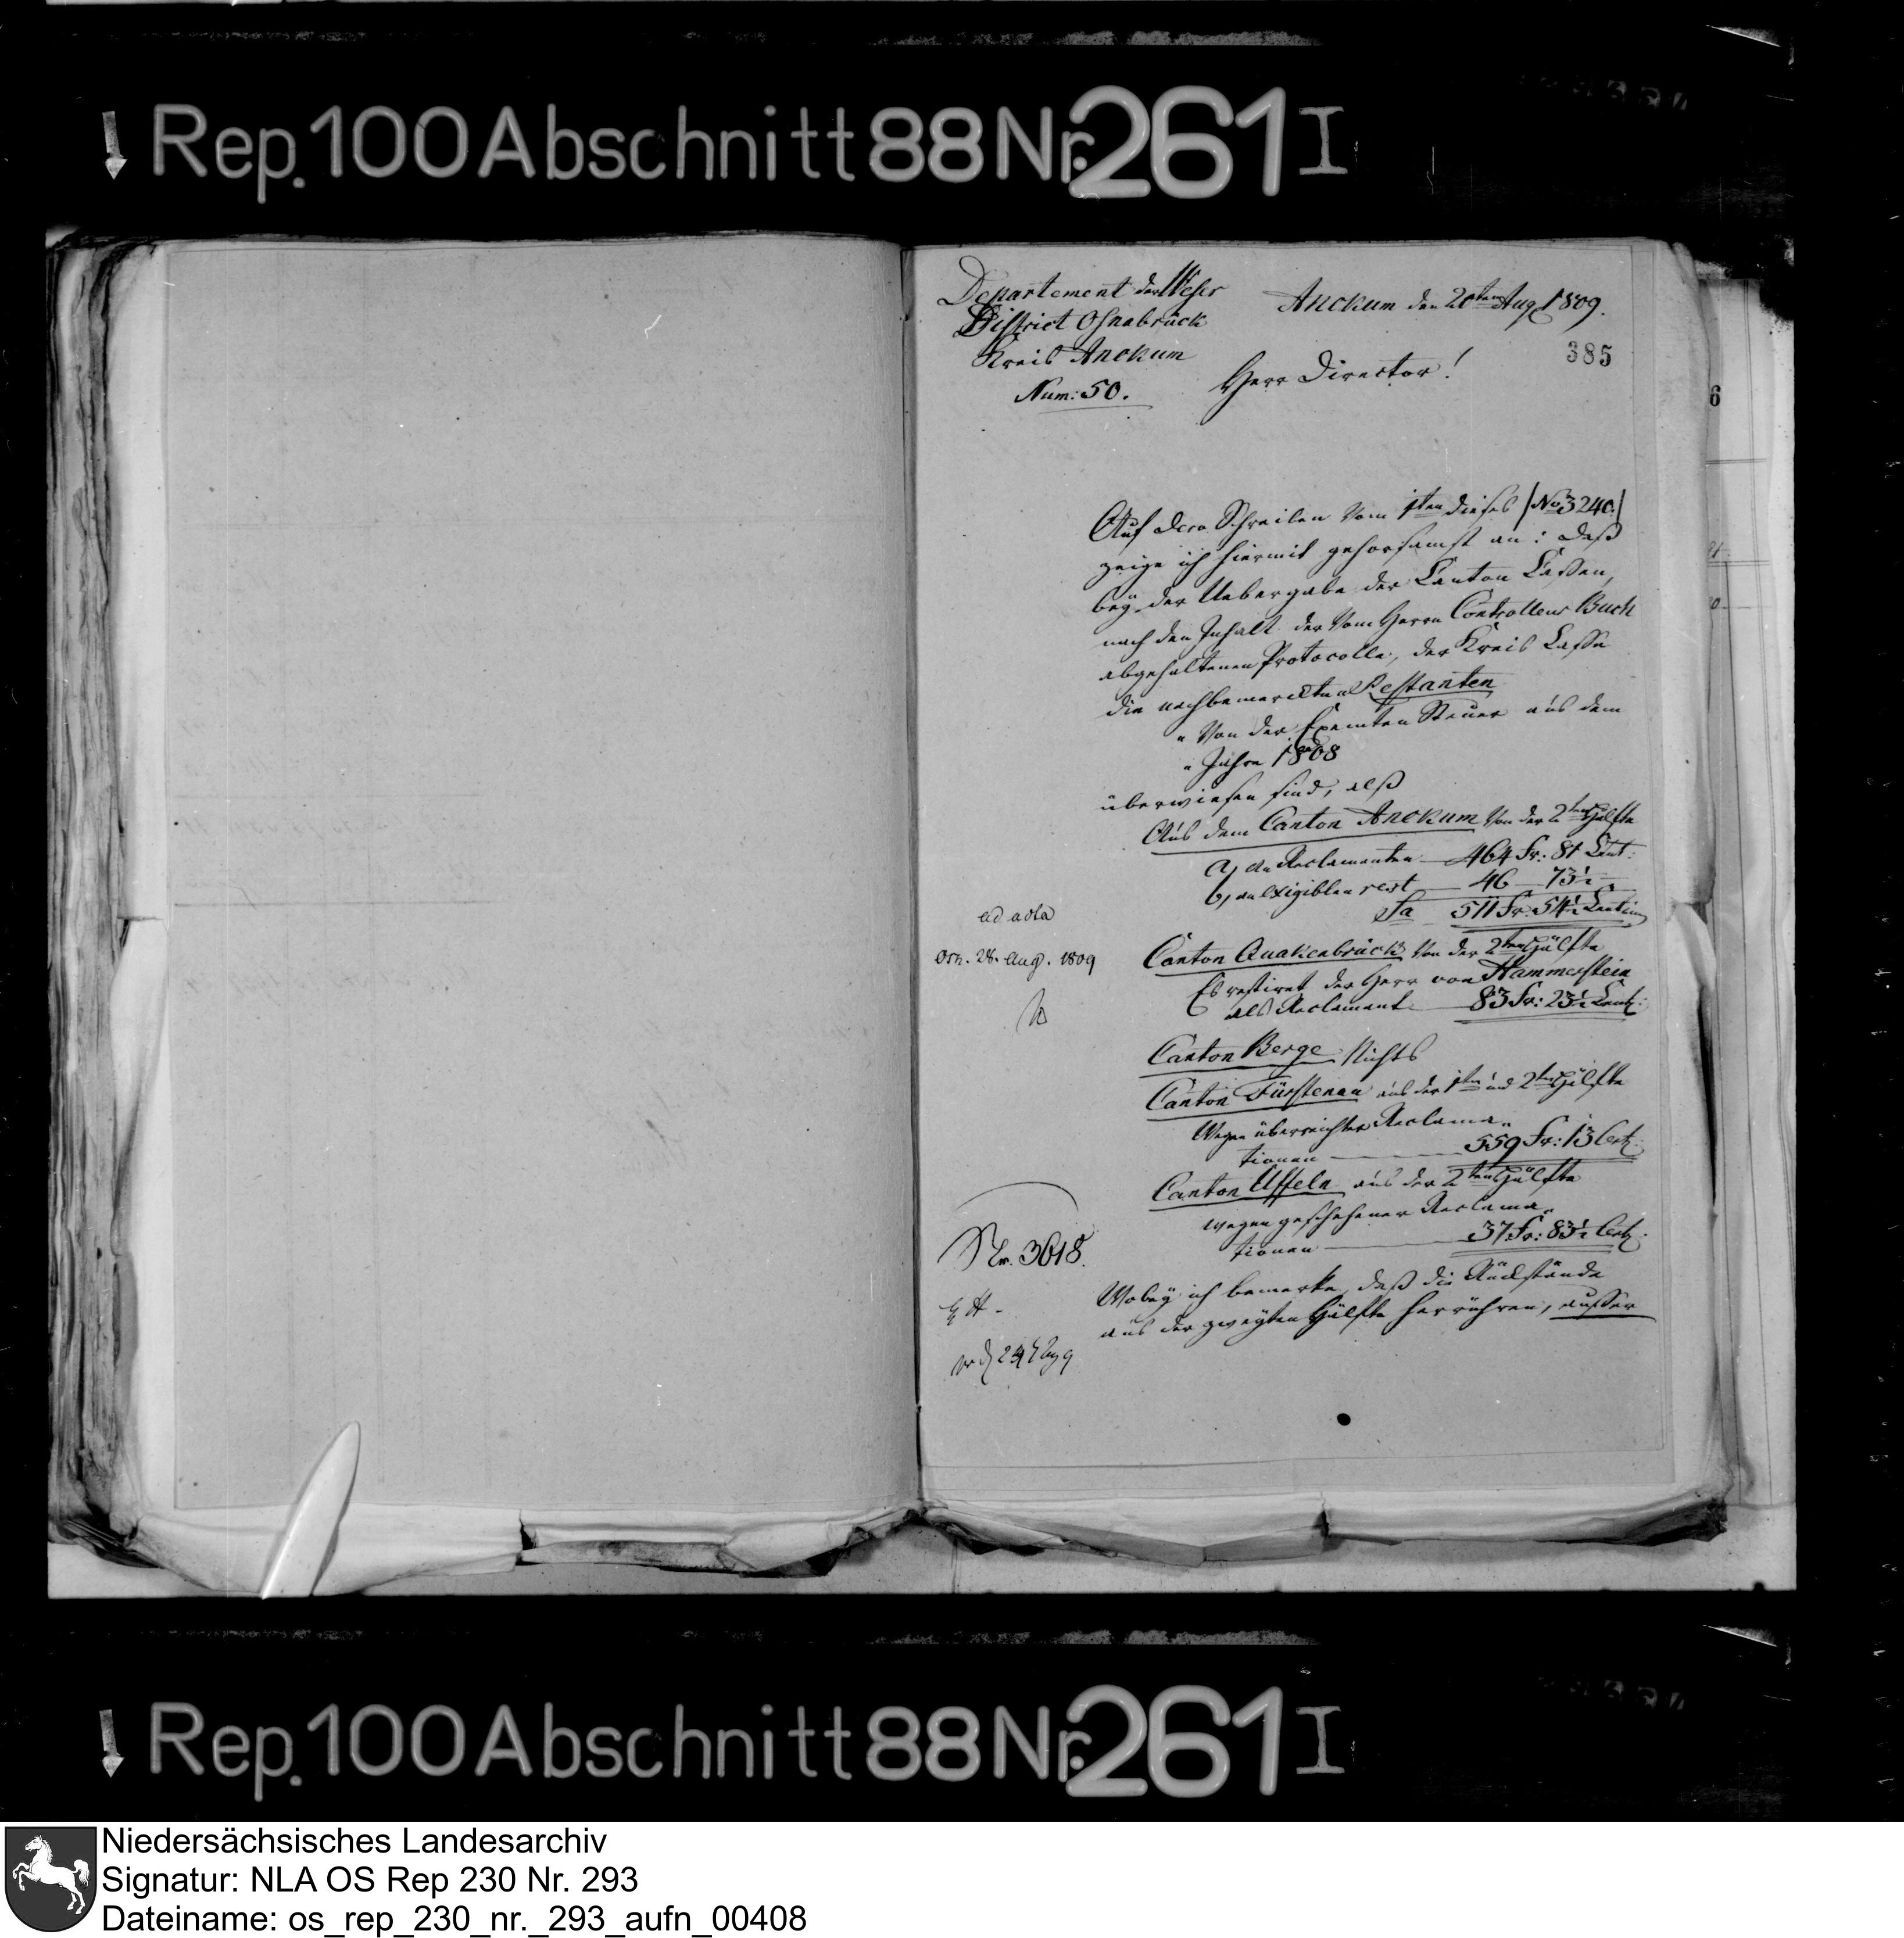 Rep. 100 Abschnitt 88 Nr. 261 I
Departement der Weser
District Osnabrück
Kreis Anckum
Num: 50.
Anckum den 20ten Aug 1809.
385
Herr Director!
6
Auf Dero Schreiben vom 1ten dieses /No 3240./
zeige ich hiermit gehorsamst an: daß
bey der Uebergabe der Canton Cassen,
nach den Inhalt der vom Herrn Controlleur Buch
abgehaltenen Protocolle, der Kreis Casse
die nachbemerckten Restanten
" von der Exemten Steuer aus dem
" Jahre 1808
überwiesen sind, alß
Aus dem Canton Anckum von der 2ten Hälfte
a, an Reclamanten 464 Fr: 81 Cent:
b, an exigiblen rest 46 — 73½ —
Sa 511 Fr. 54½ Centim
ad acta
Osn. 28. Aug. 1809
Canton Quakenbrück von der 2ten Hälfte
Es restiret der Herr von Hammerstein
als Reclamant 83 Fr: 23½ Cent:
Canton Berge Nichts
Canton Fürstenau aus der 1ten und 2ten Hälfte
Wegen überreichter Reclama„
tionen 559 Fr: 13 Cent:
Canton Uffeln aus der 2ten Hälfte
wegen geschehener Reclama„
tionen 37 Fr: 83½ Cent:
Nr. 3618.
Wobey ich bemerke, daß die Rückstände
aus der zweyten Hälfte herrühren, ausser
Rep. 100 Abschnitt 88 Nr. 261 I
Niedersächsisches Landesarchiv
Signatur: NLA OS Rep 230 Nr. 293
Dateiname: os_rep_230_nr._293_aufn_00408